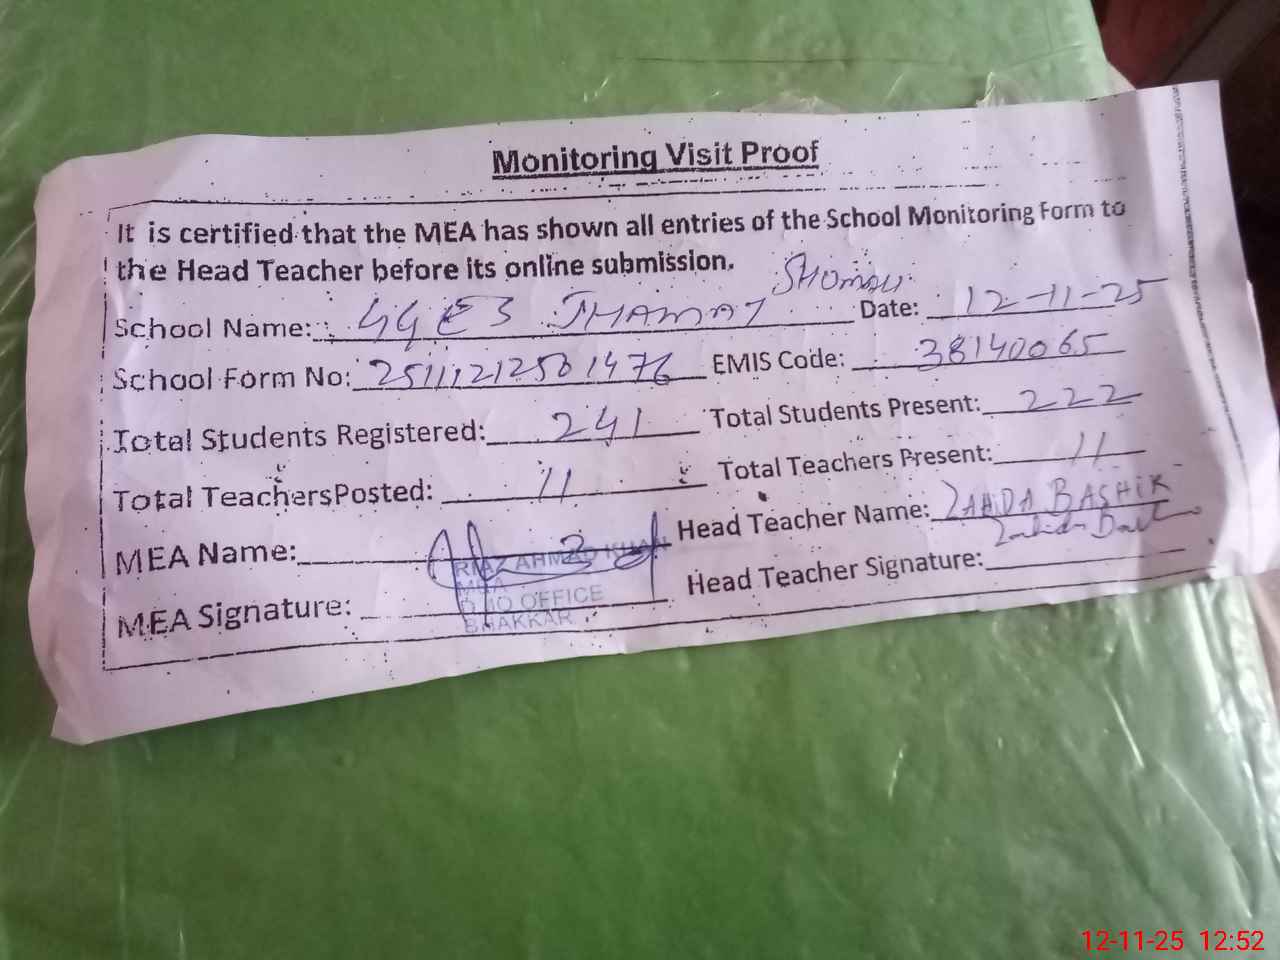 Monitoring Visit Proof
It is certified that the MEA has shown all entries of the School Monitoring Form to
the Head Teacher before its online submission.
School Name: GGES JHAMAT SHOMALI Date: 12-11-25
School Form No: 25111212501476 EMIS Code: 38140065
Total Students Registered: 241 Total Students Present: 222
Total TeachersPosted: 11 Total Teachers Present: 11
MEA Name: Head Teacher Name: ZAHIDA BASHIR
RIAZ AHMAD KHAN
MEA
OFFICE
BHAKKAR
MEA Signature: Head Teacher Signature: Zahida
12-11-25 12:52